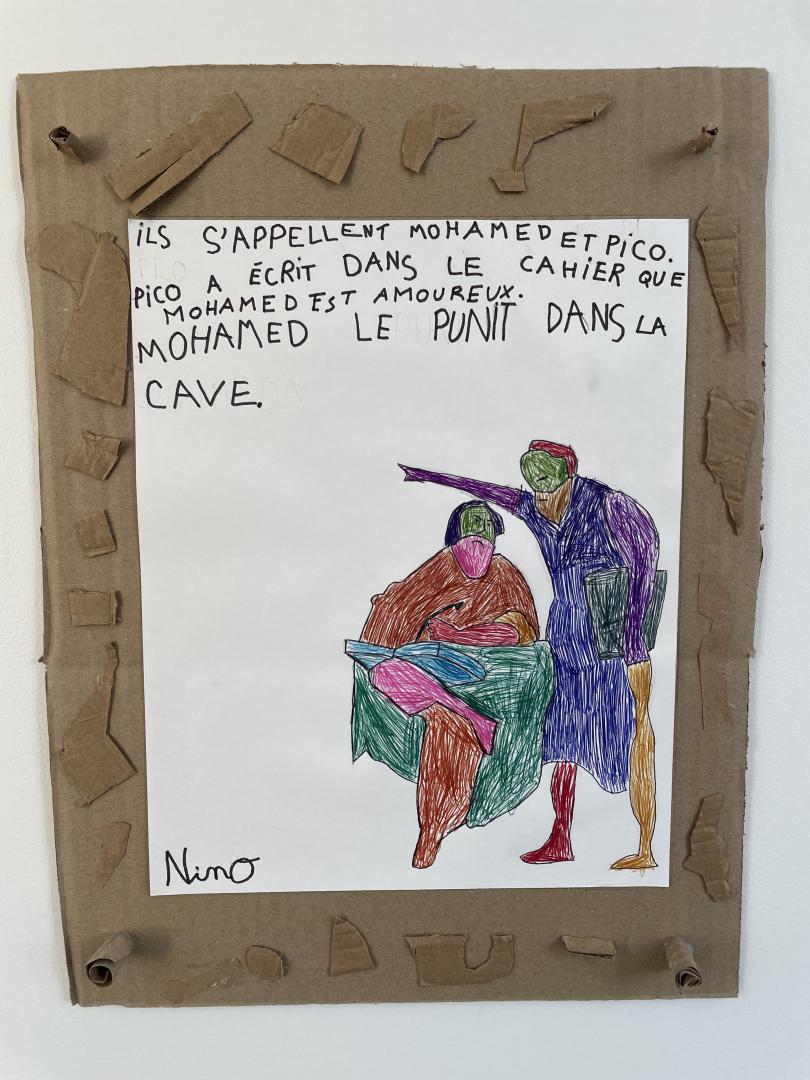 iLS S'APPELLENT MOHAMED ET PiCO.
PiCO A ÉCRIT DANS LE CAHiER QUE
MOHAMED EST AMOUREUX.
MOHAMED LE PUNiT DANS LA
CAVE.
Nino